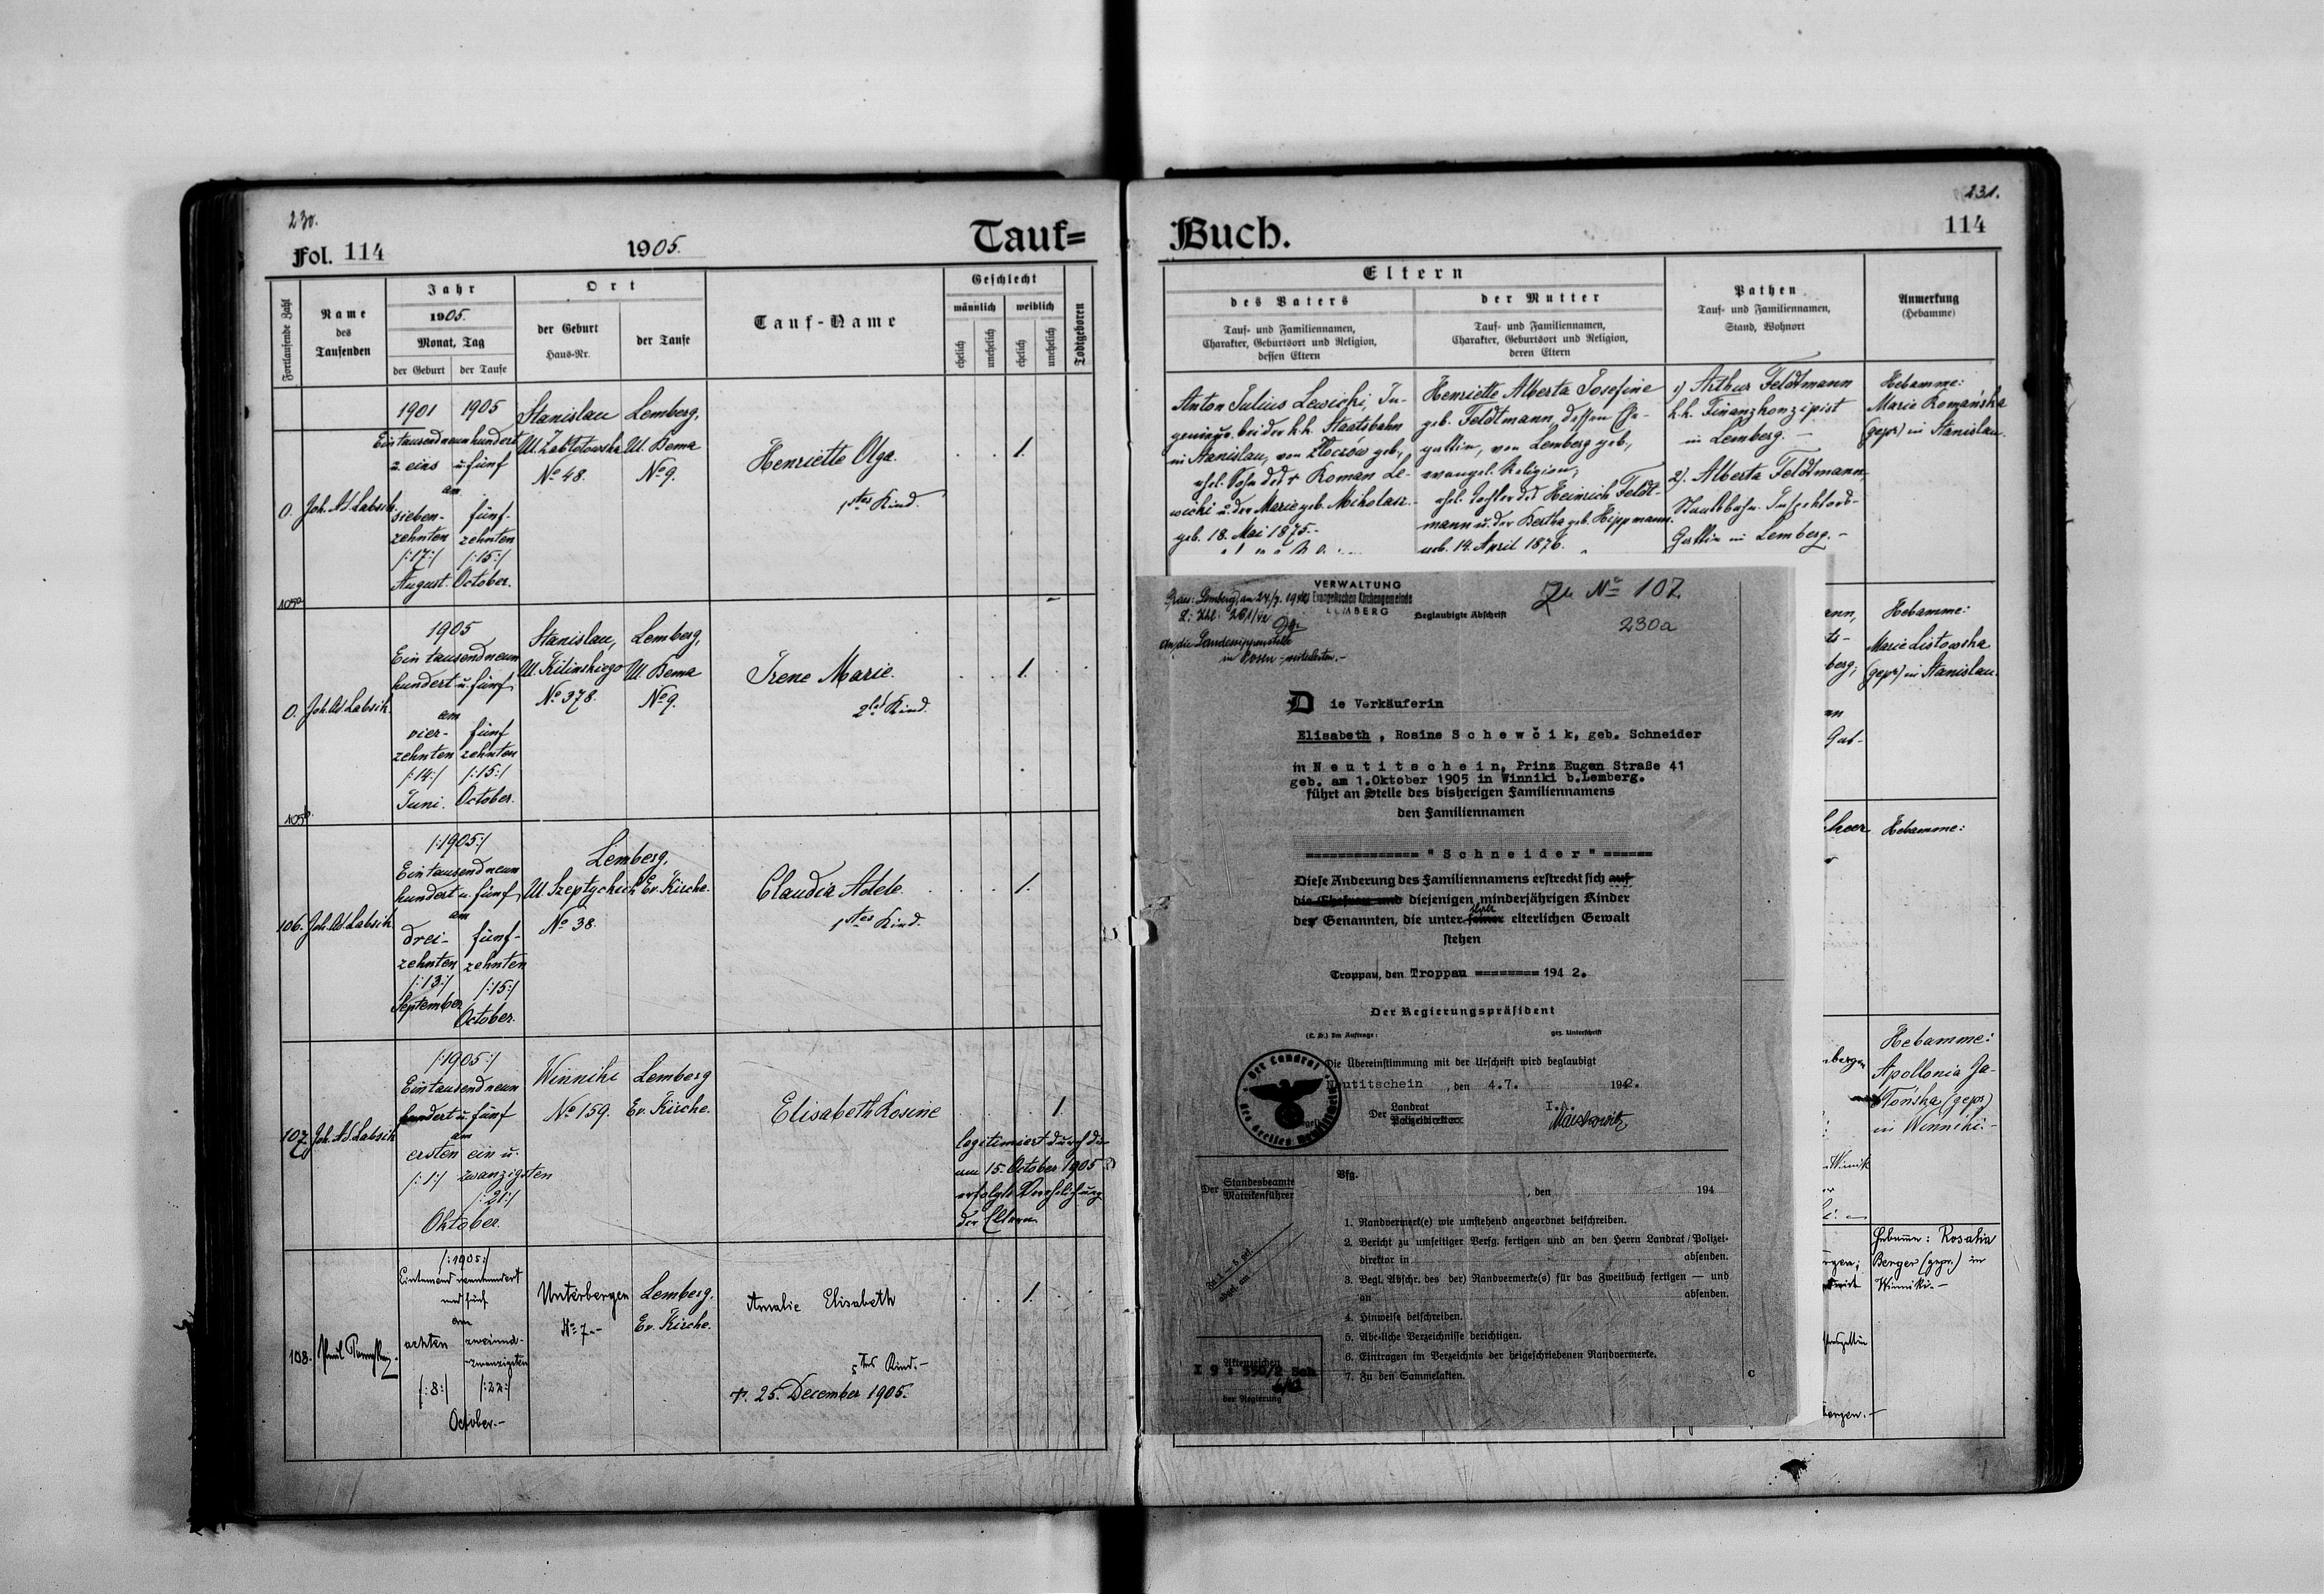 230.
Fol. 114
1905.
Tauf=
Fortlaufende Zahl
Name
des
Taufenden
Jahr
1905.
Monat, Tag
der Geburt
der Taufe
Ort
der Geburt
Haus-Nr.
der Taufe
Tauf-Name
Geschlecht
männlich
weiblich
ehelich
unehelich
ehelich
unehelich
Todtgeboren
0.
Joh. Ad. Labsik.
1901 1905
Ein tausend neunhundert
u. eins u. fünf
am
sieben- fünf-
zehnten zehnten
/:17:/ /:15:/
August. October.
Stanislau
Ul. Zabłotowska
No 48.
Lemberg,
Ul. Bema
No 9.
Henriette Olga.
1tes Kind.
1.
105a
0.
Joh. Ad. Labsik.
1905
Ein tausend neun
hundert u. fünf
am
vier- fünf
zehnten zehnten
/:14:/ /:15:/
Juni. October.
Stanislau,
Ul. Kilinskiego
No 378.
Lemberg,
Ul. Bema
No 9.
Irene Marie.
2tes Kind.
1.
105b.
106.
Joh. Ad. Labsik.
/:1905:/
Ein tausend neun
hundert u. fünf
am
drei- fünf-
zehnten zehnten
/:13:/ /:15:/
September October.
Lemberg.
Ul Szeptyckich Ev. Kirche.
No 38.
Claudia Adele.
1tes Kind.
1.
107.
Joh. Ad. Labsik
/:1905:/
Ein tausend neun
hundert u. fünf
am
ersten ein u.
/:1:/ zwanzigsten
/:21:/
Oktober.
Winniki
No 159.
Lemberg
Ev. Kirche.
Elisabeth Rosine
1.
legitimiert durch die
am 15. October 1905
erfolgte Verehelichung
der Eltern
108.
/:1905:/
Eintausend neunhundert
und fünf
am
achten zweiund-
zwanzigsten
/:8:/ /:22:/
October.-
Unterbergen
No 7.-
Lemberg.
Ev. Kirche.
Amalie Elisabeth
5tes Kind.-
†. 25. December 1905.
1.
231.
Buch.
114
Eltern
des Vaters
Tauf- und Familiennamen,
Charakter, Geburtsort und Religion,
dessen Eltern
der Mutter
Tauf- und Familiennamen,
Charakter, Geburtsort und Religion,
deren Eltern
Pathen
Tauf- und Familiennamen,
Stand, Wohnort
Anmerkung
(Hebamme)
Anton Julius Lewicki, In-
genieur bei der k.k. Staatsbahn
in Stanislau, von Złoczów geb.,
ehel. Sohn des † Roman Le-
wicki u. der Marie geb. Mikolasz.
geb. 18. Mai 1875.-
Henriette Alberta Josefine
geb. Feldtmann, dessen Ehe-
gattin, von Lemberg geb.,
evangel. Religion,
ehel. Tochter des Heinrich Feldt-
mann u. der Bertha geb. Hippmann.
geb. 14. April 1876.
1) Arthur Feldtmann
k.k. Finanzkonzipist
in Lemberg.-
2). Alberta Feldtmann,
Staatsbahn-Inspektors-
Gattin in Lemberg.-
Hebamme:
Marie Romańska
(gepr.) in Stanislau.
Hebamme:
Marie Listowska
(gepr.) in Stanislau.
Hebamme:
Hebamme:
Apollonia Ja-
(gepr.)
in Winniki.-
Hebamme: Rosalia
Berger (gepr.) in
Winniki.-
VERWALTUNG
Evangelischen Kirchengemeinde
LEMBERG
Praes: Lemberg, am 24/7. 1942
Z. Zhl. 261/42
An die Landessippenstelle
in Posen weiterleiten.-
Beglaubigte Abschrift
Zu No 107.
230a
Die Verkäuferin
Elisabeth, Rosine Schewčik, geb. Schneider
in Neutitschein, Prinz Eugen Straße 41
geb. am 1.Oktober 1905 in Winniki b.Lemberg.
führt an Stelle des bisherigen Familiennamens
den Familiennamen
============= "Schneider" ======
Diese Änderung des Familiennamens erstreckt sich auf
die Ehefrau und diejenigen minderjährigen Kinder
der Genannten, die unter seiner elterlichen Gewalt
stehen
Troppau, den Troppau ======== 1942.
Der Regierungspräsident
(L. S.) Im Auftrage:
gez. Unterschrift
Die Übereinstimmung mit der Urschrift wird beglaubigt
Neutitschein, den 4.7. 1942.
Der Landrat
Polizeidirektor
I.A.
Der Landrat
des Kreises Neutitschein
Der Standesbeamte
Matrikenführer
Vfg.
, den 194
1. Randvermerk(e) wie umstehend angeordnet beischreiben.
2. Bericht zu umseitiger Verfg. fertigen und an den Herrn Landrat/Polizei-
direktor in absenden.
3. Begl. Abschr. des (der) Randvermerke(s) für das Zweitbuch fertigen — und
an absenden.
4. Hinweise beischreiben.
5. Abc-liche Verzeichnisse berichtigen.
6. Eintragen im Verzeichnis der beigeschriebenen Randvermerke.
7. Zu den Sammelakten.
Aktenzeichen
der Regierung
C